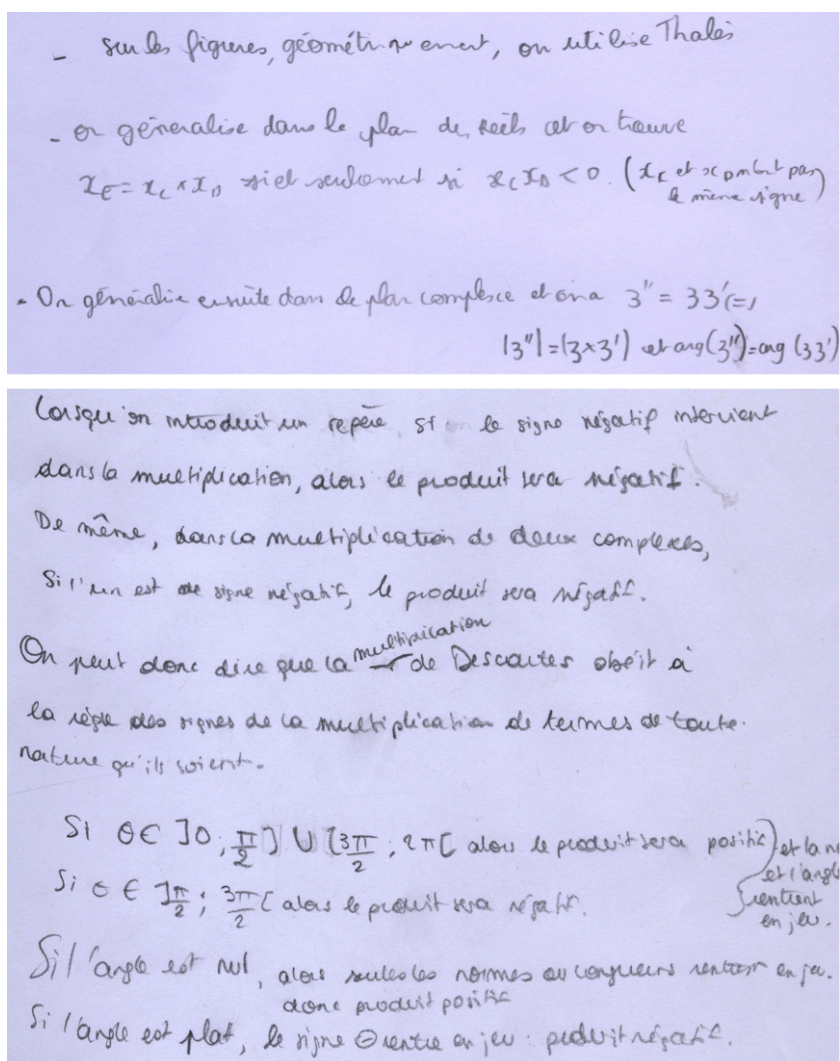 - sur les figures, géométriquement, on utilise Thalès
- on généralise dans le plan des réels et on trouve
x_E = x_C × x_D si et seulement si x_C x_D < 0. (x_C et x_D n'ont pas
le même signe)
- On généralise ensuite dans le plan complexe et on a 3'' = 33' (=)
|3''| = |3×3'| et arg(3'') = arg (33')
Lorsqu'on introduit un repère, si le signe négatif intervient
dans la multiplication, alors le produit sera négatif.
De même, dans la multiplication de deux complexes,
Si l'un est de signe négatif, le produit sera négatif.
On peut donc dire que la multiplication de Descartes obéit à
la règle des signes de la multiplication de termes de toute
nature qu'ils soient.
Si θ ∈ ]0 ; π/2] ∪ [3π/2 ; 2π[ alors le produit sera positif
Si θ ∈ ]π/2 ; 3π/2[ alors le produit sera négatif.
et la
et l'angle
rentrent
en jeu.
Si l'angle est nul, alors seules les normes ou longueurs rentrent en jeu.
donc produit positif
Si l'angle est plat, le signe ⊖ rentre en jeu : produit négatif.